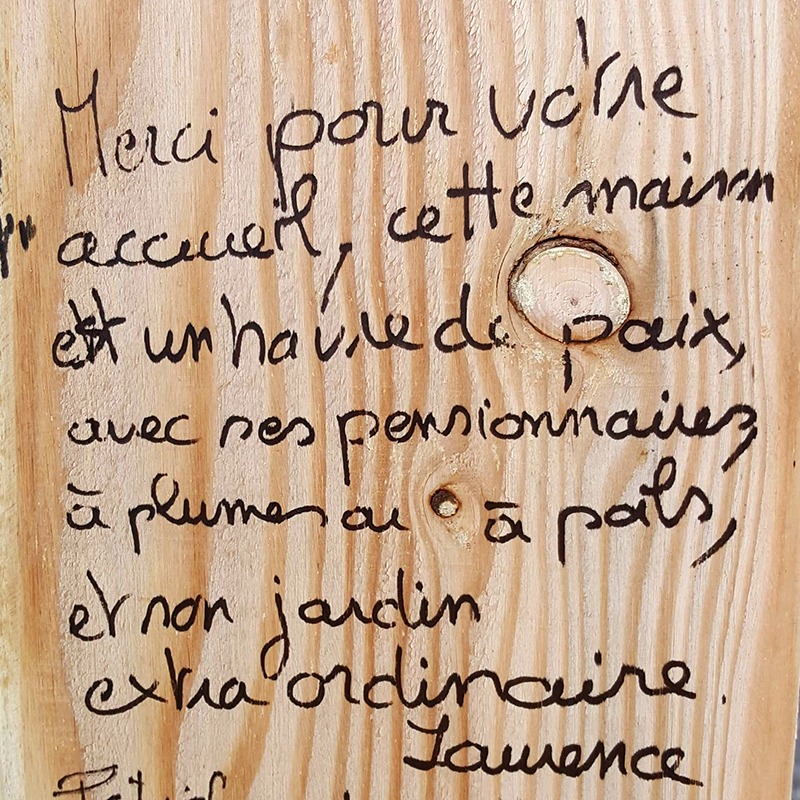 Merci pour votre
accueil, cette maison
est un havre de paix,
avec ses pensionnaires
à plumes ou à poils,
et son jardin
extra ordinaire.
Laurence